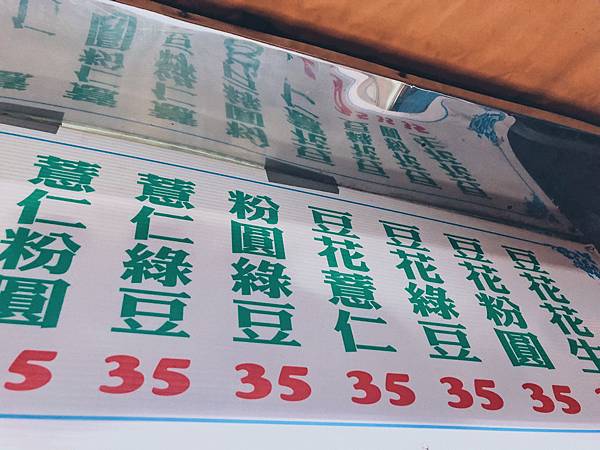 豆花花生
豆花粉圓
35
豆花綠豆
35
豆花薏仁
35
粉圓綠豆
35
薏仁綠豆
35
薏仁粉圓
5